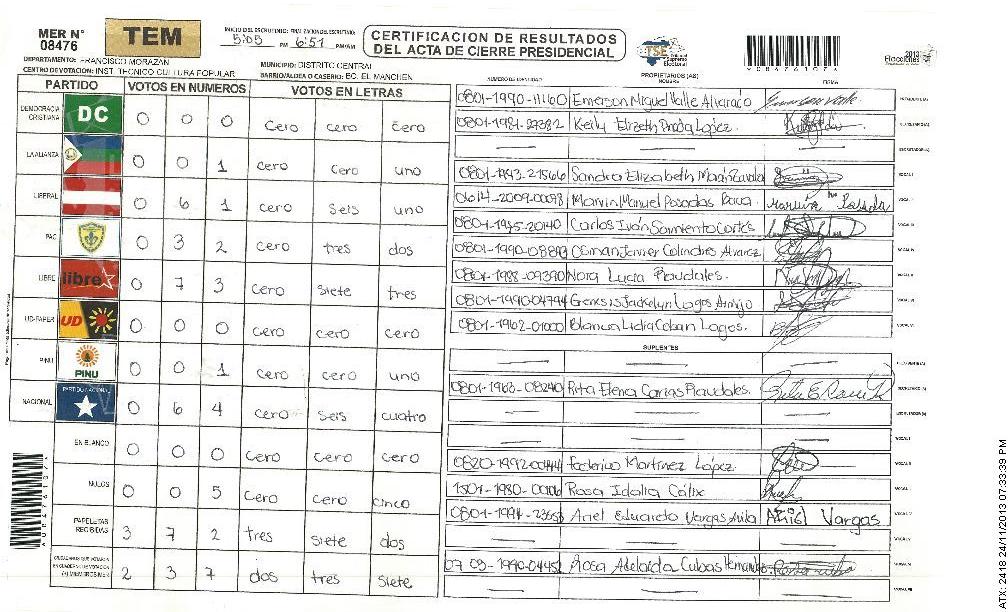 MER N° 08476
TEM
INICIO DEL ESCRUTINIO: 5:05 PM 6:51 PM/AM
CERTIFICACION DE RESULTADOS
DEL ACTA DE CIERRE PRESIDENCIAL
TSE Tribunal Supremo Electoral
2013
Elecciones
DEPARTAMENTO: FRANCISCO MORAZAN
MUNICIPIO: DISTRITO CENTRAL
CENTRO DE VOTACION: INST. TECNICO CULTURA POPULAR
BARRIO/ALDEA O CASERIO: BO. EL MANCHEN
PARTIDO VOTOS EN NUMEROS VOTOS EN LETRAS
DEMOCRACIA CRISTIANA DC 0 0 0 cero cero cero
LA ALIANZA 0 0 1 cero cero uno
LIBERAL 0 6 1 cero seis uno
PAC 0 3 2 cero tres dos
LIBRE libre 0 7 3 cero siete tres
UD-FAPER UD 0 0 0 cero cero cero
PINU PINU 0 0 1 cero cero uno
NACIONAL PARTIDO NACIONAL 0 6 4 cero seis cuatro
EN BLANCO 0 0 0 cero cero cero
NULOS 0 0 5 cero cero cinco
PAPELETAS RECIBIDAS 3 7 2 tres siete dos
CIUDADANOS QUE VOTARON EN CENTRO DE VOTACION (+) MIEMBROS MER 2 3 7 dos tres siete
NUMERO DE IDENTIDAD PROPIETARIOS (AS) FIRMA
0801-1990-11160 Emerson Miguel Valle Alvarado PRESIDENTE(A)
Keily Elizeth López. SECRETARIO(A)
0801-1993-21566 Sandra Elizabeth Zavala VOCAL I
0614-2009-00098 Marvin Manuel Posadas
Carlos Iván Sarmiento Cortés
Javier Colindres Alvarez
0801-1988-09390 Nora Lucia
Lagos
0801-1962-01000 Blanca Lidia Coban Lagos.
SUPLENTES
0801-1968-08240 Rita Elena Carias
Federico Martinez López
1501-1980- Rosa Idalia Cálix
Ariel Eduardo Vargas Avila Ariel Vargas
Rosa Adelaida Cubas
ATX: 2418 24/11/2013 07:33:39 PM